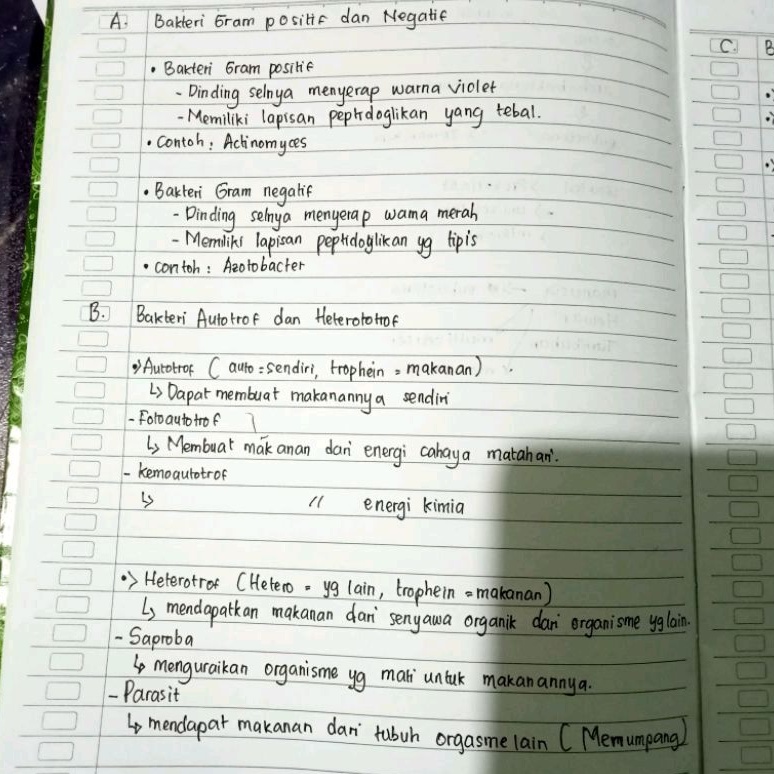 A. Bakteri Gram positif dan Negatif
• Bakteri Gram positif
- Dinding selnya menyerap warna violet
- Memiliki lapisan peptidoglikan yang tebal.
• Contoh : Actinomyces
• Bakteri Gram negatif
- Dinding selnya menyerap warna merah
- Memiliki lapisan peptidoglikan yg tipis
• contoh : Azotobacter
B. Bakteri Autotrof dan Heterototrof
•> Autotrof ( auto = sendiri, trophein = makanan )
↳ Dapat membuat makanannya sendiri
- Fotoautotrof
↳ Membuat makanan dari energi cahaya matahari.
- kemoautotrof
↳ // energi kimia
•> Heterotrof (Hetero = yg lain, trophein = makanan)
↳ mendapatkan makanan dari senyawa organik dari organisme yg lain.
- Saproba
↳ menguraikan organisme yg mati untuk makanannya.
- Parasit
↳ mendapat makanan dari tubuh orgasme lain ( Memumpang)
C. B